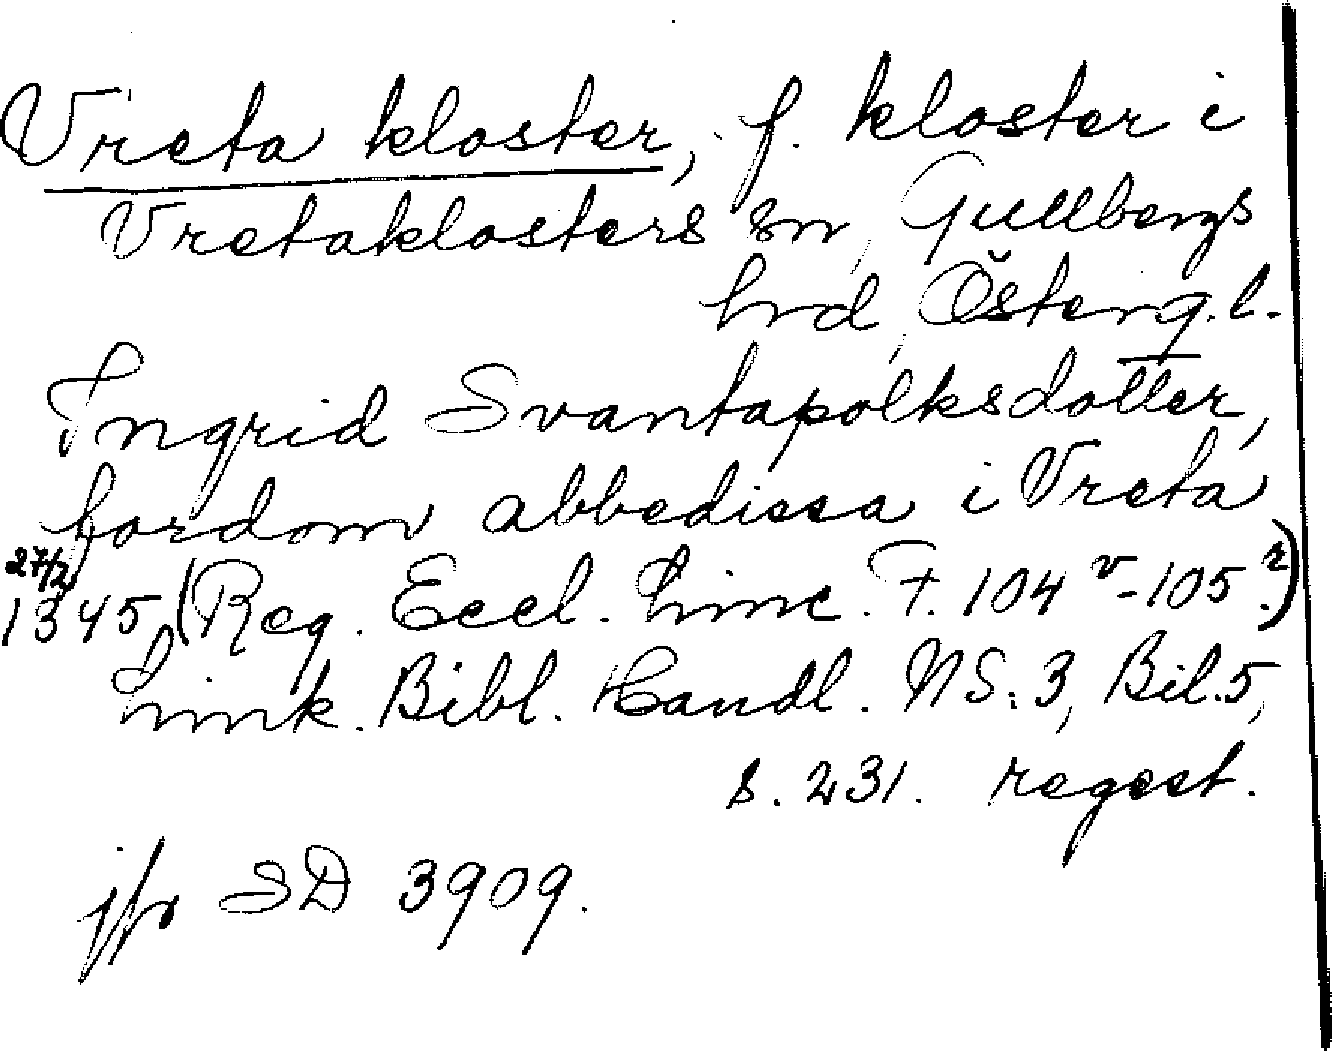 Vreta kloster, f. kloster i
Vretaklosters sn, Gullbergs
hrd, Österg. l.
Ingrid Svantapolksdotter,
fordom abbedissa i Vreta
27/2
1345 (Reg. Eccl. Linc. F. 104 v - 105 r.)
Link. Bibl. Handl. NS: 3, Bil. 5,
s. 231. regest.
jfr SD 3909.